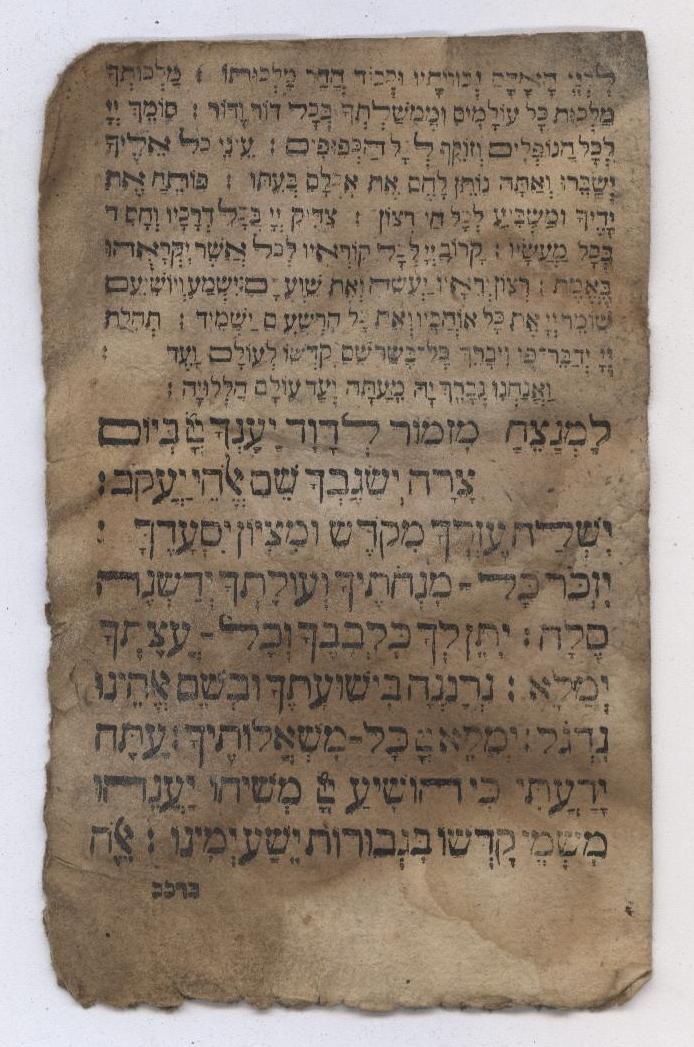 לִבְנֵי הָאָדָם גְּבוּרֹתָיו וּכְבוֹד הֲדַר מַלְכוּתוֹ : מַלְכוּתְךָ
מַלְכוּת כָּל עוֹלָמִים וּמֶמְשַׁלְתְּךָ בְּכָל דּוֹר וָדוֹר : סוֹמֵךְ יְיָ
לְכָל הַנּוֹפְלִים וְזוֹקֵף לְכָל הַכְּפוּפִים : עֵינֵי כֹל אֵלֶיךָ
יְשַׂבֵּרוּ וְאַתָּה נוֹתֵן לָהֶם אֶת אָכְלָם בְּעִתּוֹ : פּוֹתֵחַ אֶת
יָדֶיךָ וּמַשְׂבִּיעַ לְכָל חַי רָצוֹן : צַדִּיק יְיָ בְּכָל דְּרָכָיו וְחָסִיד
בְּכָל מַעֲשָׂיו : קָרוֹב יְיָ לְכָל קוֹרְאָיו לְכֹל אֲשֶׁר יִקְרָאֻהוּ
בֶאֱמֶת : רְצוֹן יְרֵאָיו יַעֲשֶׂה וְאֶת שַׁוְעָתָם יִשְׁמַע וְיוֹשִׁיעֵם
שׁוֹמֵר יְיָ אֶת כָּל אוֹהֲבָיו וְאֵת כָּל הָרְשָׁעִים יַשְׁמִיד : תְּהִלַּת
יְיָ יְדַבֶּר־פִּי וִיבָרֵךְ כָּל־בָּשָׂר שֵׁם קָדְשׁוֹ לְעוֹלָם וָעֶד :
וַאֲנַחְנוּ נְבָרֵךְ יָהּ מֵעַתָּה וְעַד עוֹלָם הַלְלוּיָהּ :
לַמְנַצֵּחַ מִזְמוֹר לְדָוִד יַעַנְךָ יְיָ בְּיוֹם
צָרָה יְשַׂגֶּבְךָ שֵׁם אֱלֹהֵי יַעֲקֹב :
יִשְׁלַח עֶזְרְךָ מִקֹּדֶשׁ וּמִצִּיּוֹן יִסְעָדֶךָּ :
יִזְכֹּר כָּל־מִנְחֹתֶיךָ וְעוֹלָתְךָ יְדַשְּׁנֶה
סֶלָה : יִתֶּן לְךָ כִלְבָבֶךָ וְכָל־עֲצָתְךָ
יְמַלֵּא : נְרַנְּנָה בִּישׁוּעָתֶךָ וּבְשֵׁם אֱלֹהֵינוּ
נִדְגֹּל : יְמַלֵּא יְיָ כָּל־מִשְׁאֲלוֹתֶיךָ : עַתָּה
יָדַעְתִּי כִּי הוֹשִׁיעַ יְיָ מְשִׁיחוֹ יַעֲנֵהוּ
מִשְּׁמֵי קָדְשׁוֹ בִּגְבוּרוֹת יֵשַׁע יְמִינוֹ : אֵלֶּה
ברכב